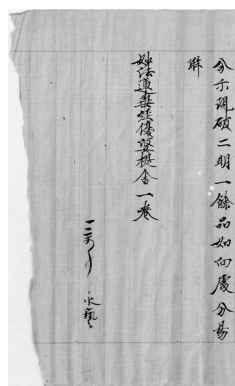 分示現破二明一餘品如向處分易
解
妙法蓮華經優婆提舍一卷
一校了 永藝